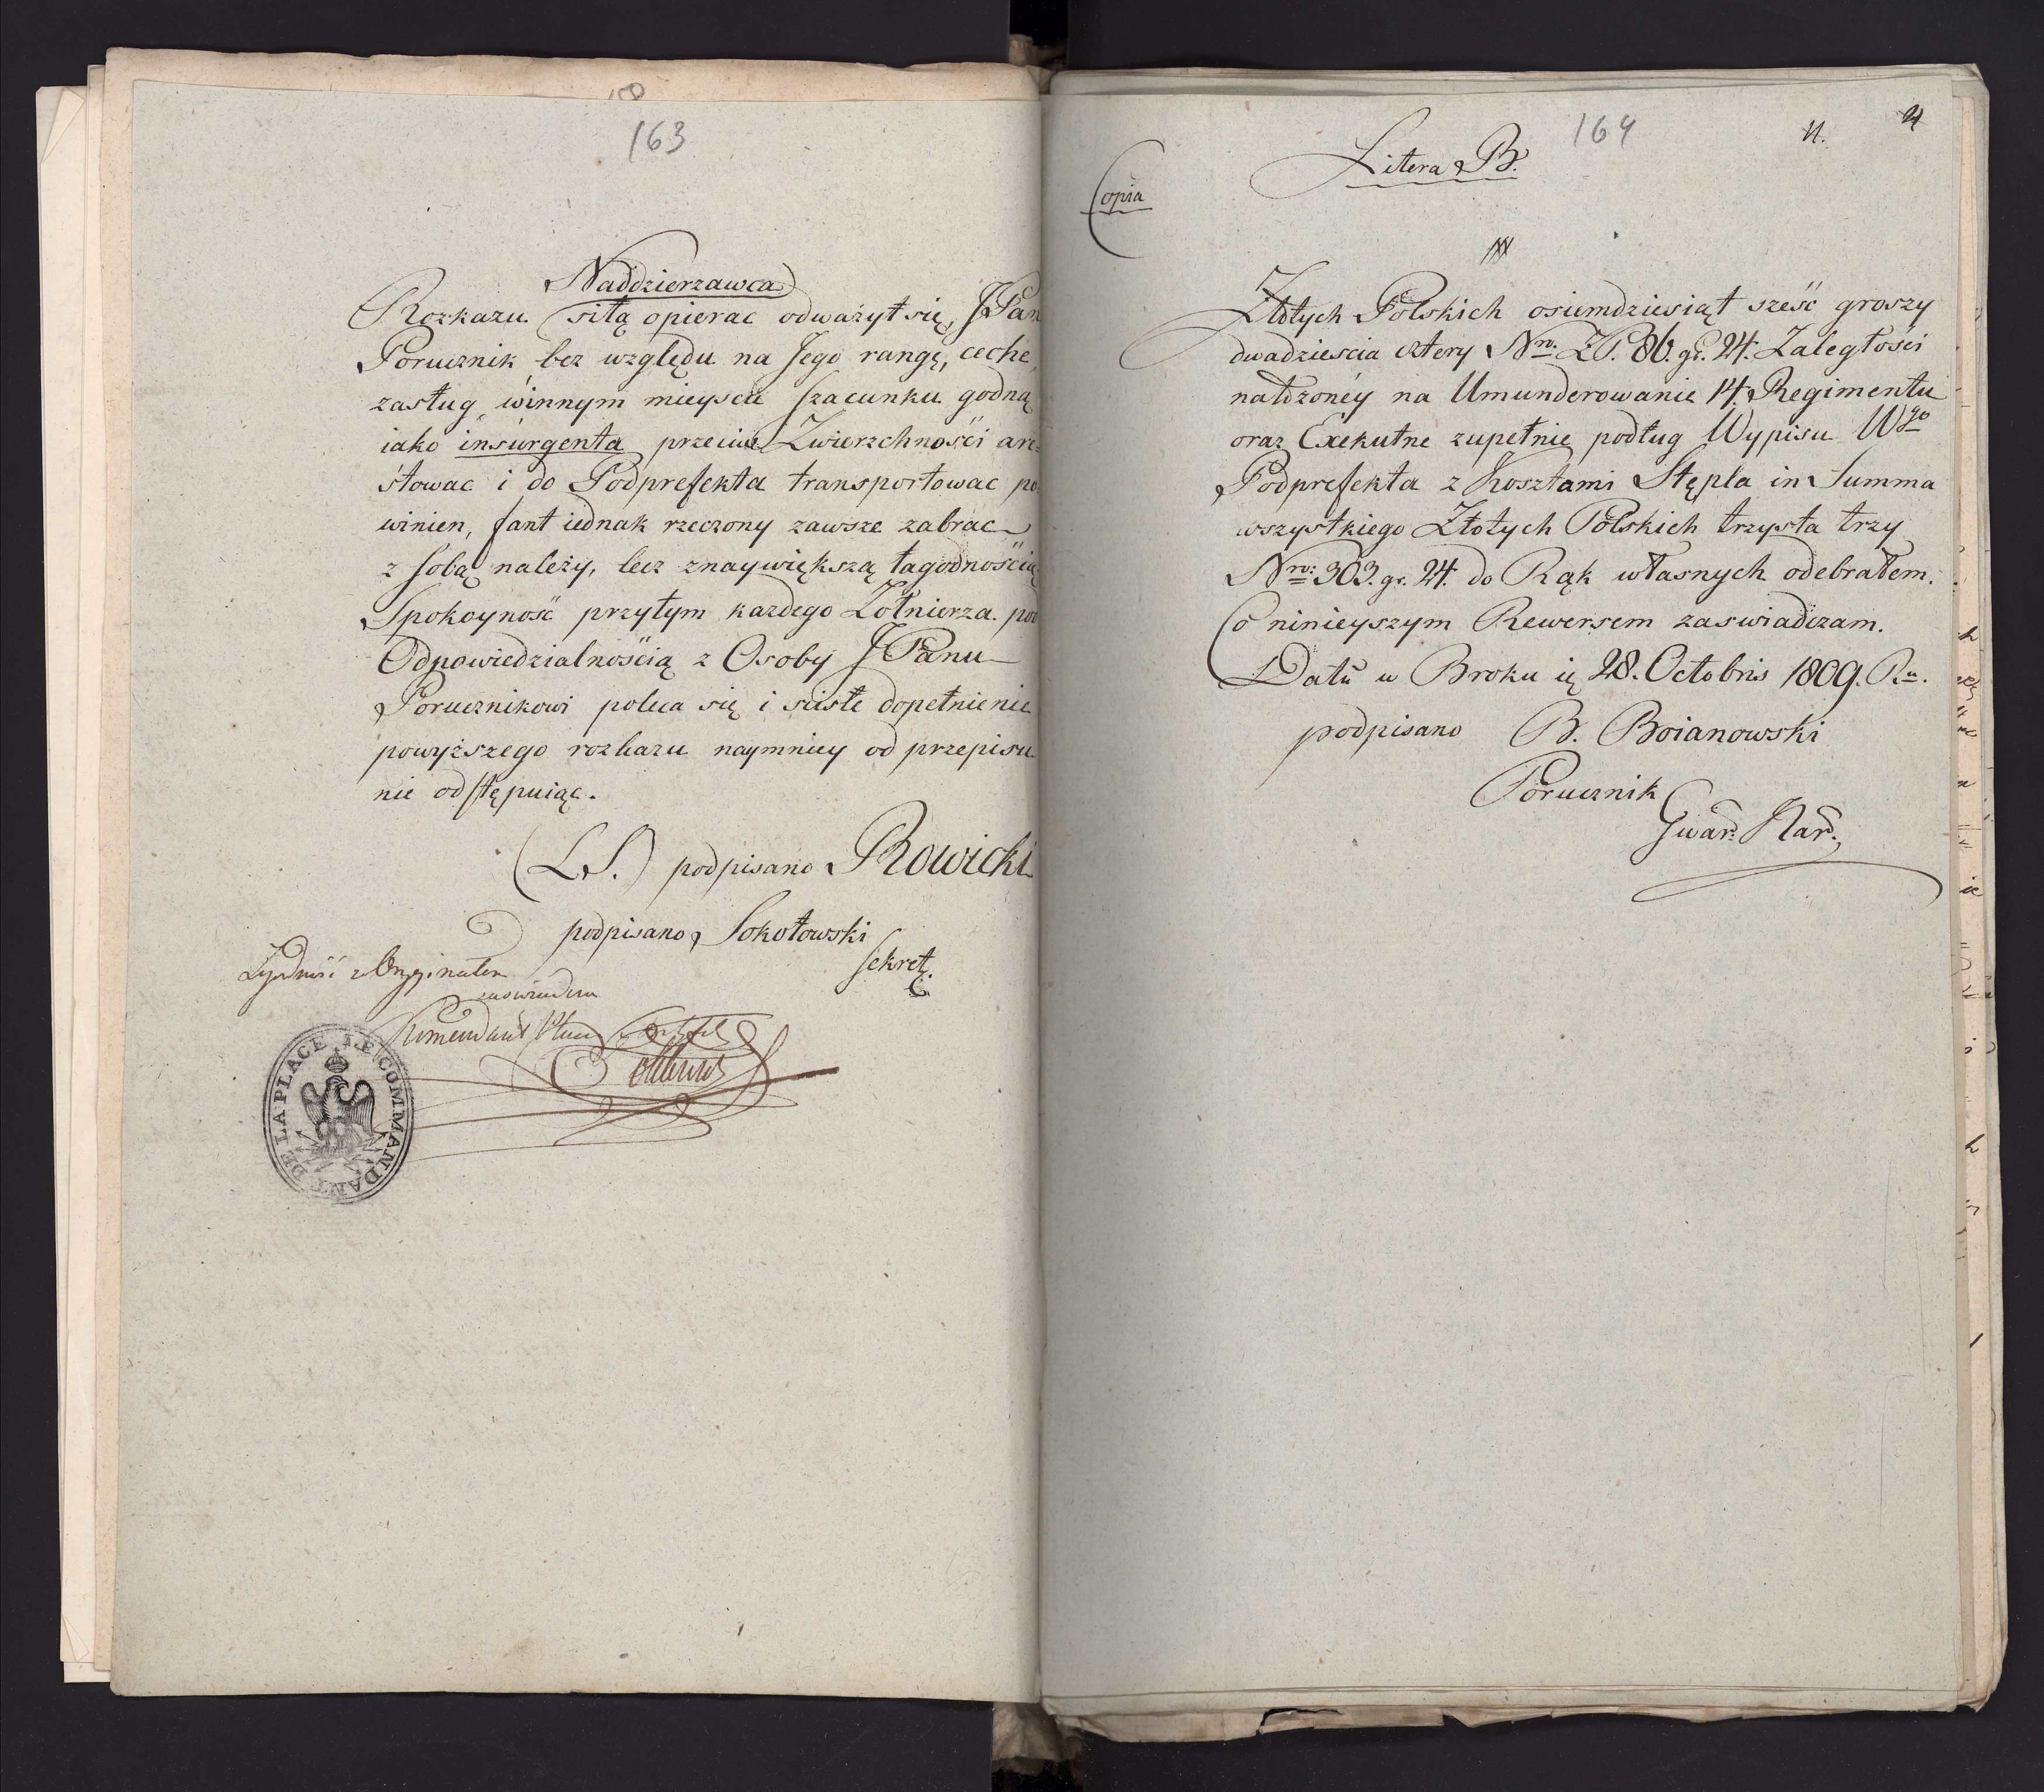 163
Naddzierzawca
Rozkazu siłą opierac odważył się, JPan
Porucznik bez względu na Jego rangę, cechę,
zasług, winnym mieyscu szacunku godną
iako insurgenta przeciw Zwierzchności are=
stowac i do Podprefekta transportowac po=
winien, fant iednak rzeczony zawsze zabrac
z sobą należy, lecz znaywiększą łagodnością
Spokoyność przytym kazdego Zołnierza pod
Odpowiedzialnością z Osoby JPanu
Porucznikowi poleca się i scisłe dopełnienie
powyższego rozkazu naymniey od przepisu
nie odstępuiąc.
(L.S.) podpisano Rowicki
podpisano Sokołowski
Sekret.
Zgodność z Oryginałem
zaswiadcza
Komendant Placu
LE COMMANDANT DE LA PLACE
164
4
Litera B.
Copia
Złotych Polskich osiemdziesiąt sześć groszy
dwadziescia cztery Nro. ZP. 86. gr. 24. Zaległości
nałdzonéy na Umunderowanie 14. Regimentu
oraz Exekutne zupełnie podług Wypisu Wgo
Podprefekta z Kosztami Stępla in Summa
wszystkiego Złotych Polskich trzysta trzy
Nro: 303. gr. 24. do Rąk własnych odebrałem.
Co ninieyszym Rewersem zaswiadczam.
Datū w Broku ię 28. Octobris 1809. Ru.
podpisano B. Boianowski
Porucznik
Gwar. Nar.